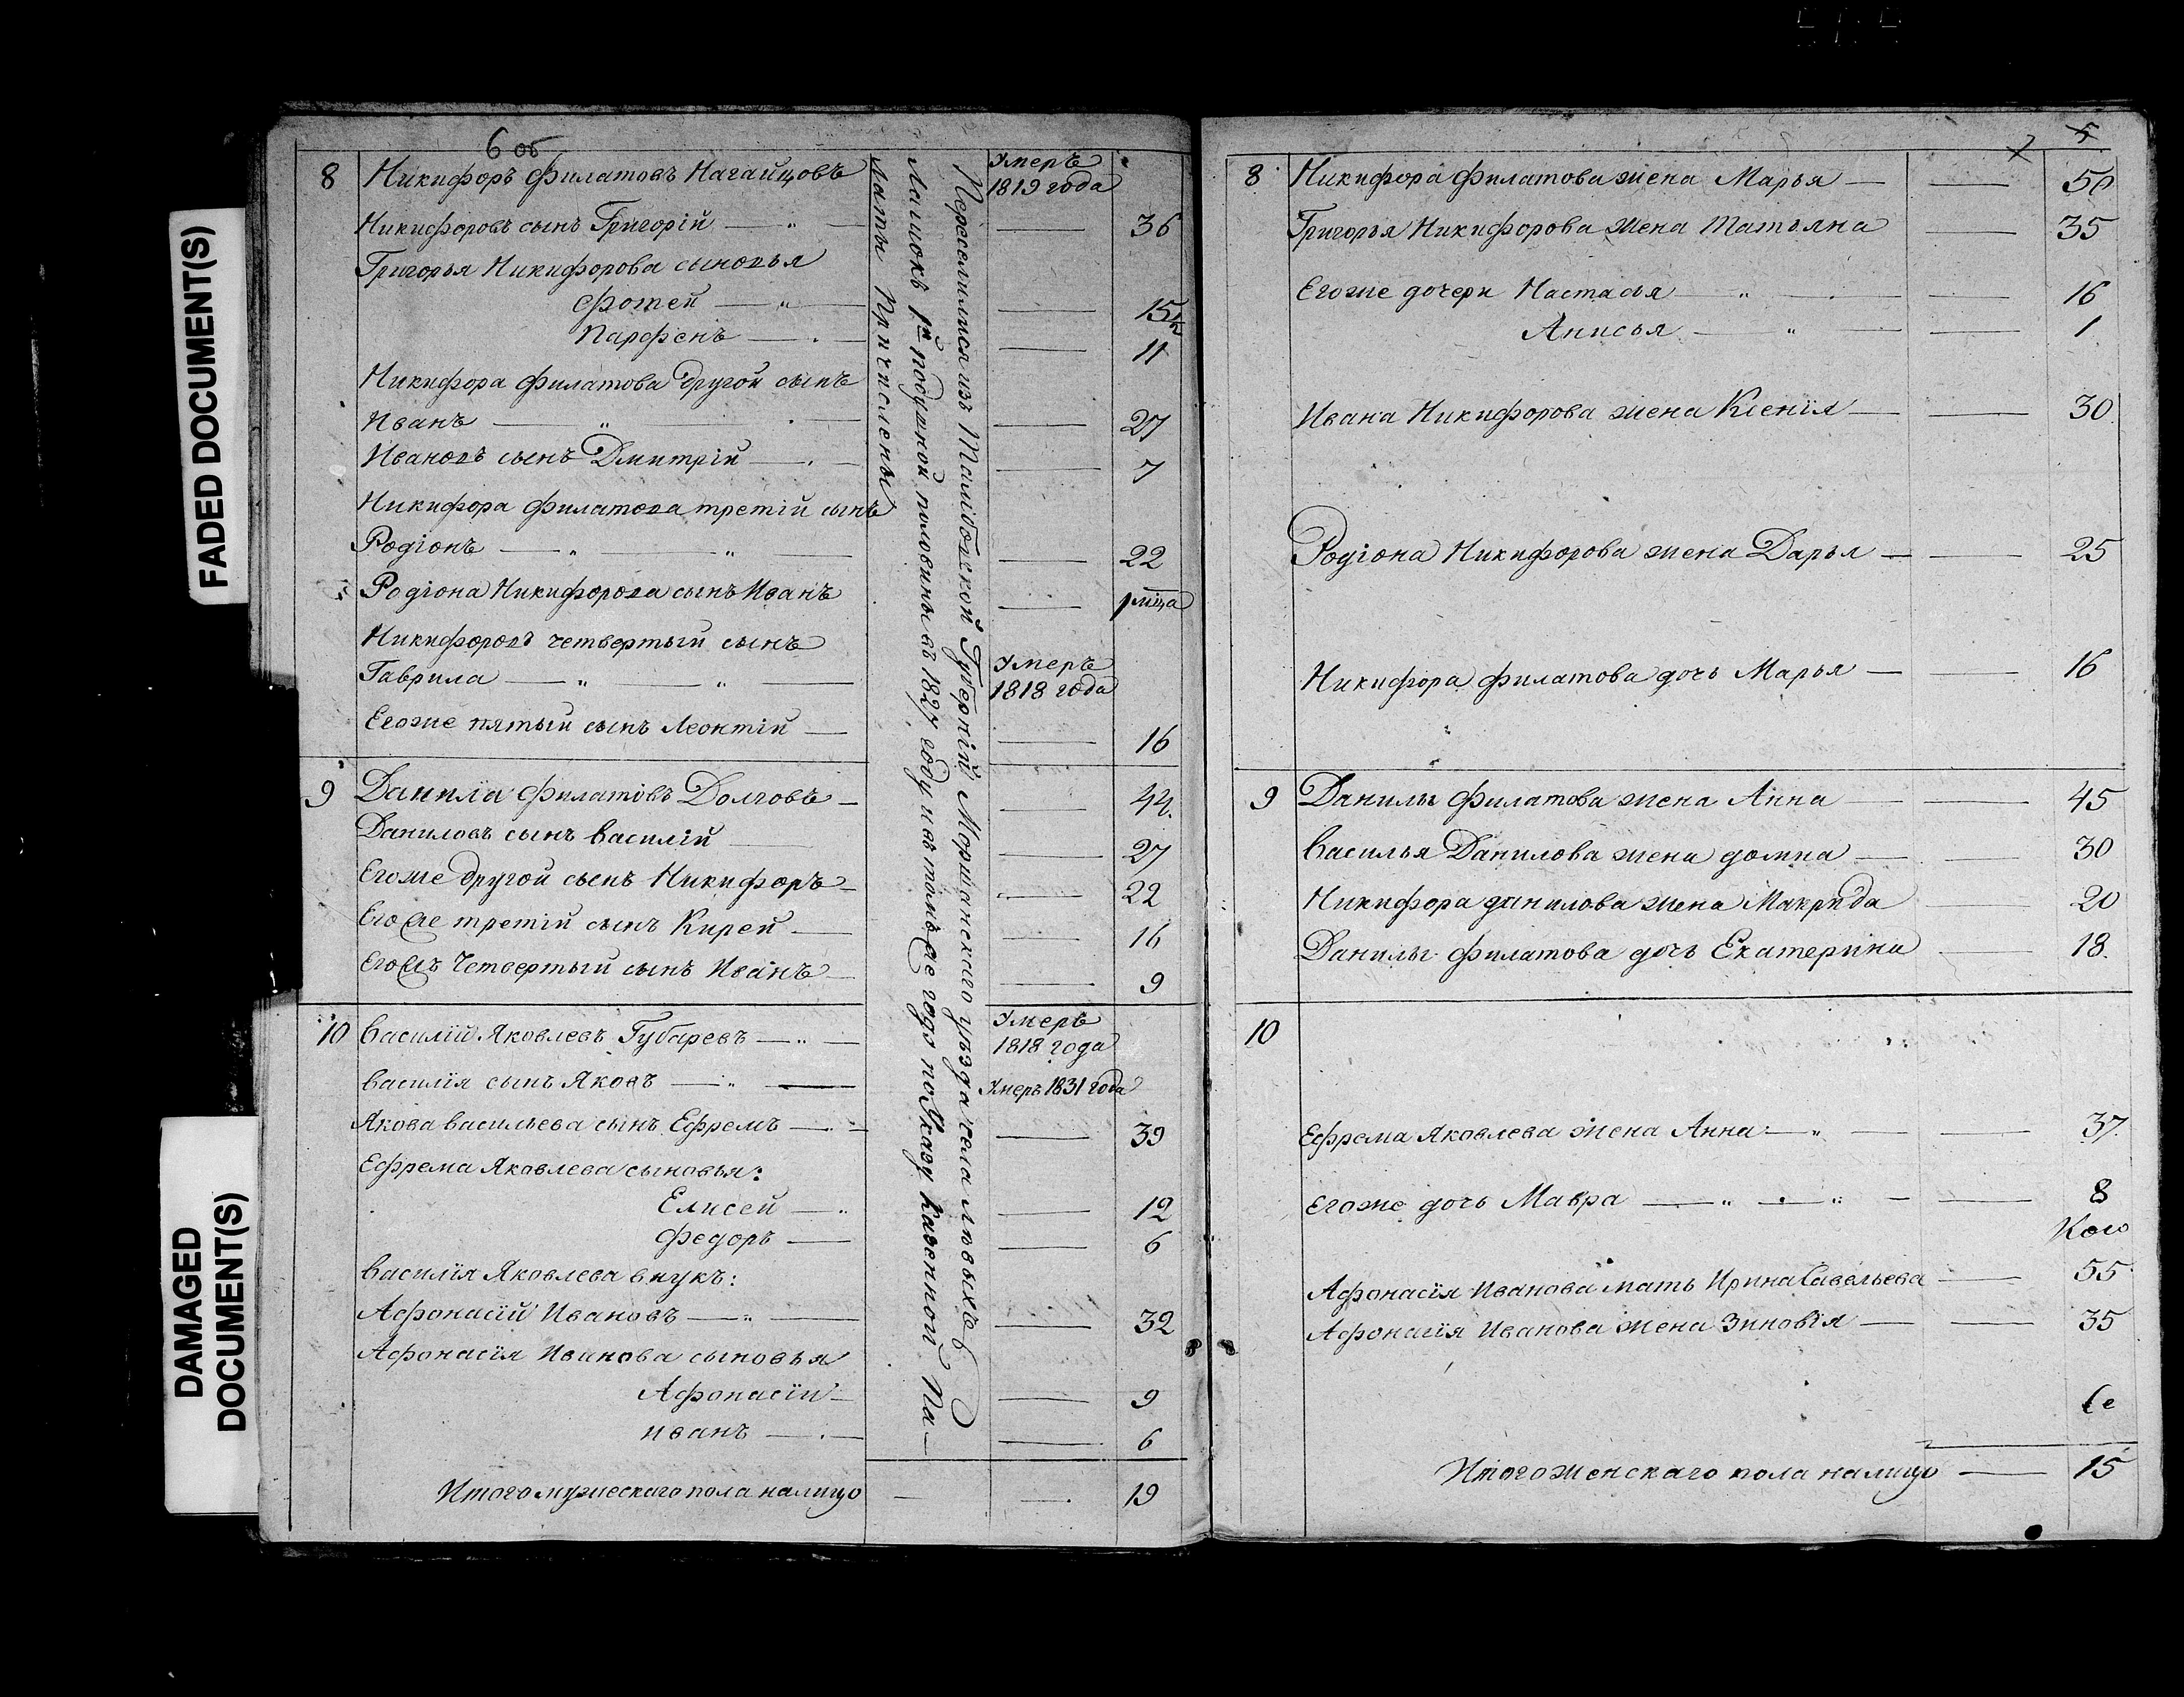 FADED DOCUMENT(S)
DAMAGED
DOCUMENT(S)
6 об
8 Никифоръ Филатовъ Нагайцовъ Умеръ
1819 года
Никифоровъ сынъ Григорій — 36
Григорья Никифорова сыновья
Фотей — 15½
Парфенъ — 11
Никифора Филатова другой сынъ
Иванъ — 27
Ивановъ сынъ Дмитрій — 7
Никифора Филатова третій сынъ
Родіонъ — 22
Родіона Никифорова сынъ Иванъ — 1 мца
Никифоровъ четвертый сынъ
Гаврила — Умеръ
1818 года
Егоже пятый сынъ Леонтій — 16
9 Данила Филатовъ Долговъ — 44.
Даниловъ сынъ Василій — 27
Егоже другой сынъ Никифоръ — 22
Егоже третій сынъ Кирей — 16
Егожъ четвертый сынъ Иванъ — 9
10 Василій Яковлевъ Губаревъ — Умеръ
1818 года
Василія сынъ Яковъ — Умеръ 1831 года
Якова Васильева сынъ Ефремъ — 39
Ефрема Яковлева сыновья:
Елисей — 12
Федоръ — 6
Василія Яковлева внукъ:
Афонасій Ивановъ — 32
Афонасія Иванова сыновья
Афонасіи — 9
Иванъ — 6
Итого мужескаго пола налицо — 19
Переселились изъ Тамбовской Губерніи Моршанскаго уѣзда села Левыхъ
Лашокъ 1й подушной половины въ 1827 году и въ томъ же годе по Указу Казенной Па-
латы Причислены
5
8 Никифора Филатова жена Марья — 50
Григорья Никифорова жена Татьяна — 35
Егоже дочери Настасья — 16
Анисья — 1
Ивана Никифорова жена Ксенія — 30
Родіона Никифорова жена Дарья — 25
Никифора Филатова дочь Марья — 16
9 Данилы Филатова жена Анна — 45
Василья Данилова жена домна — 30
Никифора данилова жена Макрида 20
Данилы Филатова дочь Екатерина — 18.
10
Ефрема Яковлева жена Анна — 37.
Егоже дочь Мавра — 8
Афонасія Иванова мать Ирина Савельева — 55
Афонасія Иванова жена Зиновія — 35
Итого женскаго пола налицо — 15